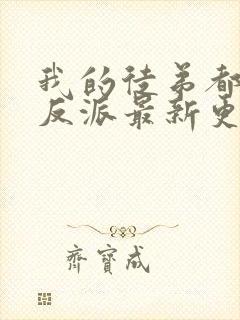 我的徒弟都
反派最新更
齊寶成